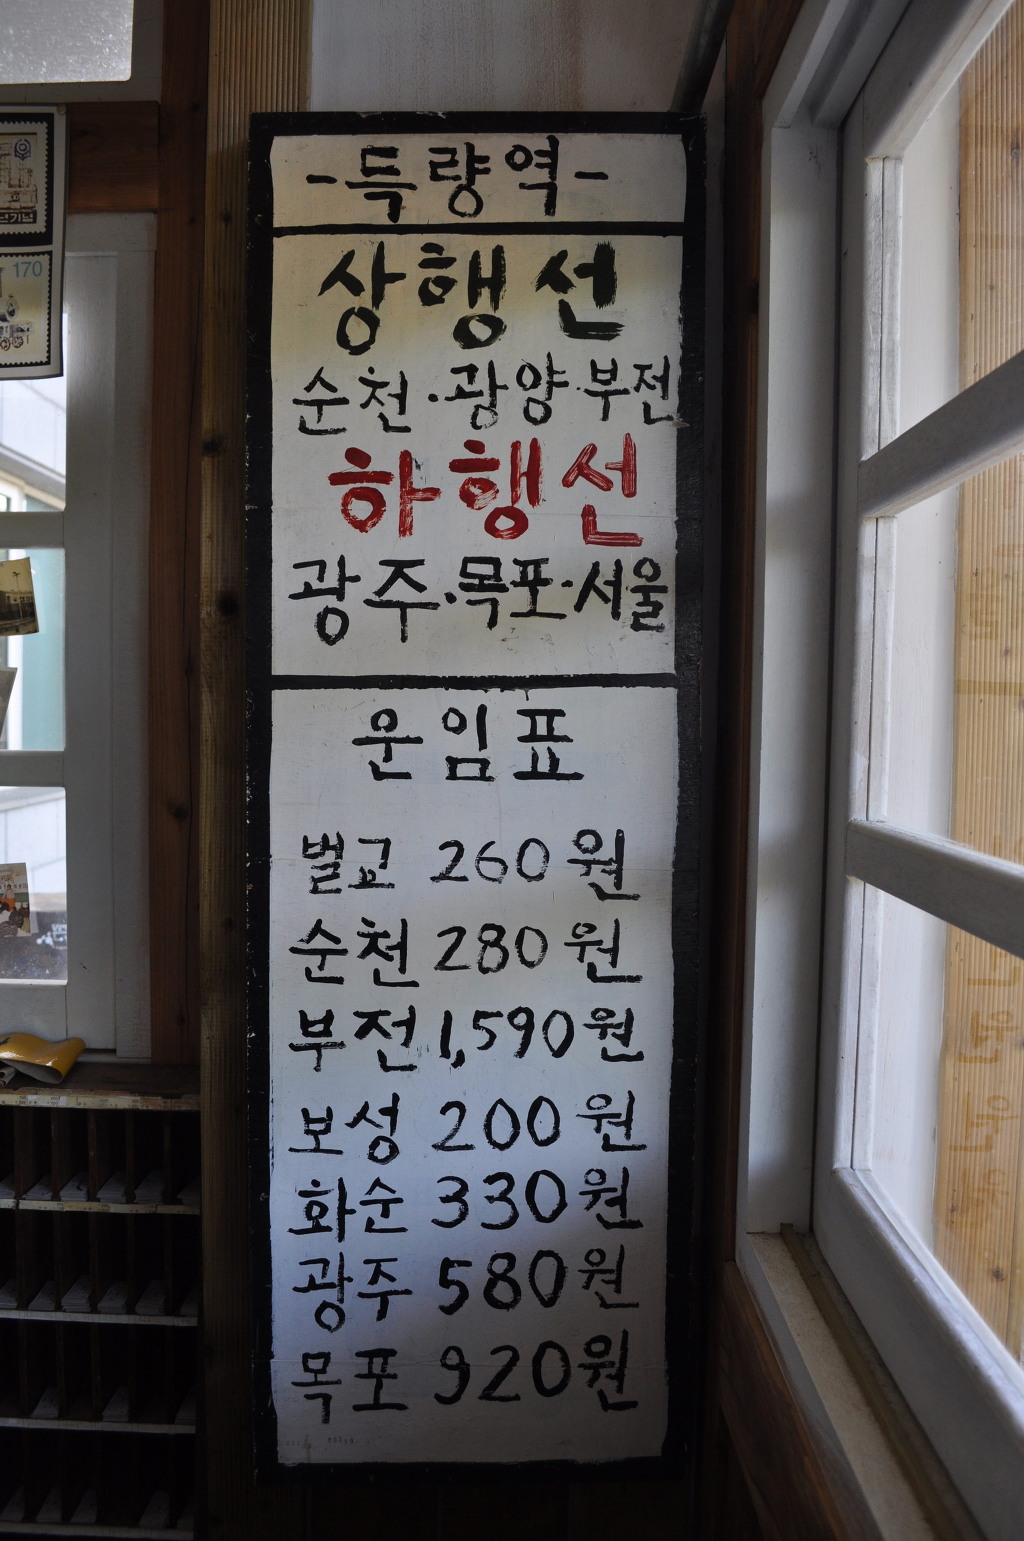 -득량역-
상행선
순천·광양·부전
하행선
광주·목포·서울
운임표
벌교 260원
순천 280원
부전 1,590원
보성 200원
화순 330원
광주 580원
목포 920원
170